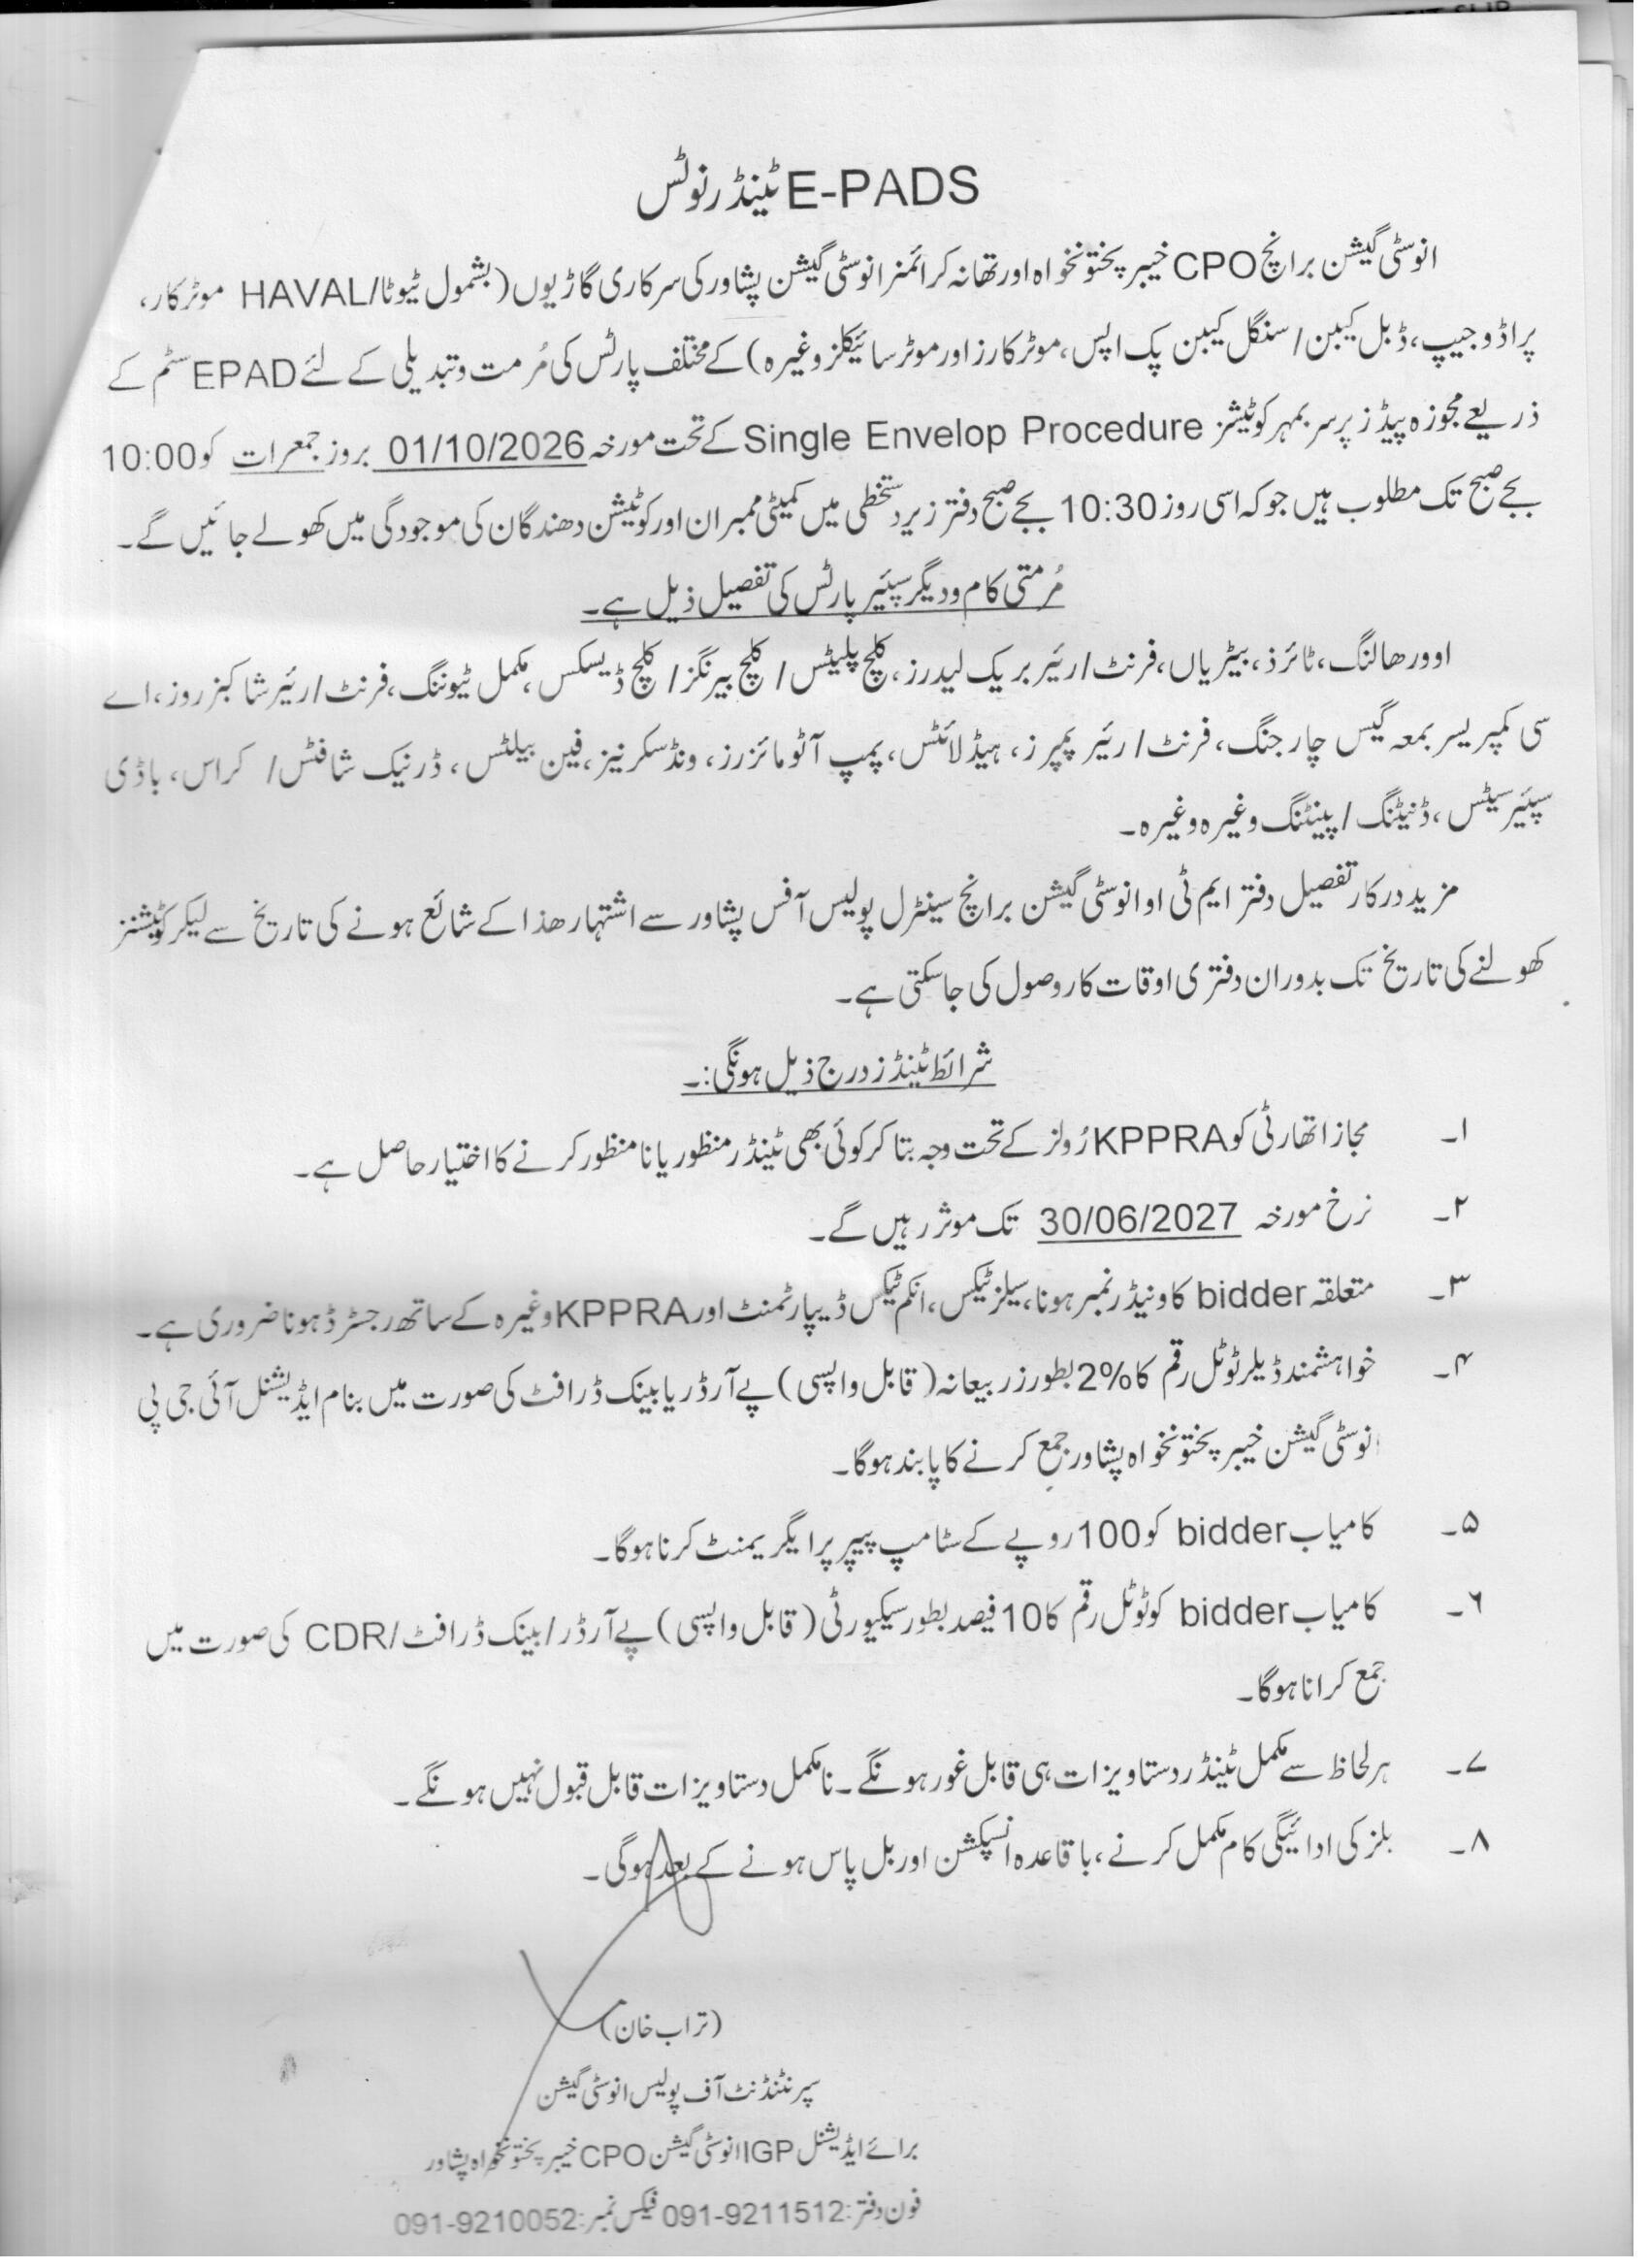 E-PADS ٹینڈر نوٹس
انوسٹی گیشن برانچ CPO خیبر پختونخواہ اور تھانہ کرائمز انوسٹی گیشن پشاور کی سرکاری گاڑیوں (بشمول ٹیوٹا/HAVAL موٹر کار،
پراڈو جیپ، ڈبل کیبن / سنگل کیبن پک اپس، موٹر کارز اور موٹر سائیکلز وغیرہ) کے مختلف پارٹس کی مُرمت و تبدیلی کے لئے EPAD سٹم کے
ذریعے مجوزہ پیڈز پر سر بمہر کوٹیشنز Single Envelop Procedure کے تحت مورخہ 01/10/2026 بروز جمعرات کو 10:00
بجے صبح تک مطلوب ہیں جو کہ اسی روز 10:30 بجے صبح دفتر زیر دستخطی میں کمیٹی ممبران اور کوٹیشن دھندگان کی موجودگی میں کھولے جائیں گے۔
مُرمتی کام و دیگر سپئیر پارٹس کی تفصیل ذیل ہے۔
اوورھالنگ، ٹائرذ، بیٹریاں، فرنٹ / رئیر بریک لیدرز، کلچ پلیٹس / کلچ بیرنگز / کلچ ڈیسکس، مکمل ٹیوننگ، فرنٹ / رئیر شاکبزروز، اے
سی کمپریسر بمعہ گیس چارجنگ، فرنٹ / رئیر بمپرز، ہیڈ لائٹس، پمپ آٹومائزرز، ونڈ سکرنیز، فین بیلٹس، ڈرنیک شافٹس / کراس، باڈی
سپئیر سیٹس، ڈنیٹنگ / پینٹنگ وغیرہ وغیرہ۔
مزید درکار تفصیل دفتر ایم ٹی او انوسٹی گیشن برانچ سینٹرل پولیس آفس پشاور سے اشتہار ھذا کے شائع ہونے کی تاریخ سے لیکر کوٹیشنز
کھولنے کی تاریخ تک بدوران دفتری اوقات کار وصول کی جاسکتی ہے۔
شرائط ٹینڈز درج ذیل ہونگی:۔
۱۔ مجاز اتھارٹی کو KPPRA رُولز کے تحت وجہ بتا کر کوئی بھی ٹینڈر منظور یا نامنظور کرنے کا اختیار حاصل ہے۔
۲۔ نرخ مورخہ 30/06/2027 تک موثر رہیں گے۔
۳۔ متعلقہ bidder کا ونیڈر نمبر ہونا، سیلز ٹیکس، انکم ٹیکس ڈیپارٹمنٹ اور KPPRA وغیرہ کے ساتھ رجسٹرڈ ہونا ضروری ہے۔
۴۔ خواہشمند ڈیلر ٹوٹل رقم کا 2% بطور زر بیعانہ (قابل واپسی) پے آرڈر یا بینک ڈرافٹ کی صورت میں بنام ایڈیشنل آئی جی پی
انوسٹی گیشن خیبر پختونخواہ پشاور جمع کرنے کا پابند ہوگا۔
۵۔ کامیاب bidder کو 100 روپے کے سٹامپ پیپر پر ایگریمنٹ کرنا ہوگا۔
۶۔ کامیاب bidder کو ٹوٹل رقم کا 10 فیصد بطور سیکیورٹی (قابل واپسی) پے آرڈر / بینک ڈرافٹ / CDR کی صورت میں
جمع کرانا ہوگا۔
۷۔ ہر لحاظ سے مکمل ٹینڈر دستاویزات ہی قابل غور ہونگے۔ نامکمل دستاویزات قابل قبول نہیں ہونگے۔
۸۔ بلز کی ادائیگی کام مکمل کرنے، باقاعدہ انسپکشن اور بل پاس ہونے کے بعد ہوگی۔
(تراب خان)
سپرنٹنڈنٹ آف پولیس انوسٹی گیشن
برائے ایڈیشنل IGP انوسٹی گیشن CPO خیبر پختونخواہ پشاور
فون دفتر: 091-9211512 فیکس نمبر: 091-9210052